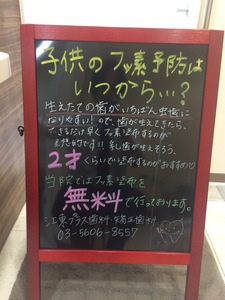 子供のフッ素予防は
いつから…?
生えたての歯がいちばん虫歯に
なりやすい!ので、歯が生えてきたら、
できるだけ早くフッ素塗布するのが
理想的です!!乳歯が生えそろう、
2才くらいでの塗布するのがおすすめ♡
当院ではフッ素塗布を
無料で行っております。
江東プラス歯科・矯正歯科
03-5606-8557